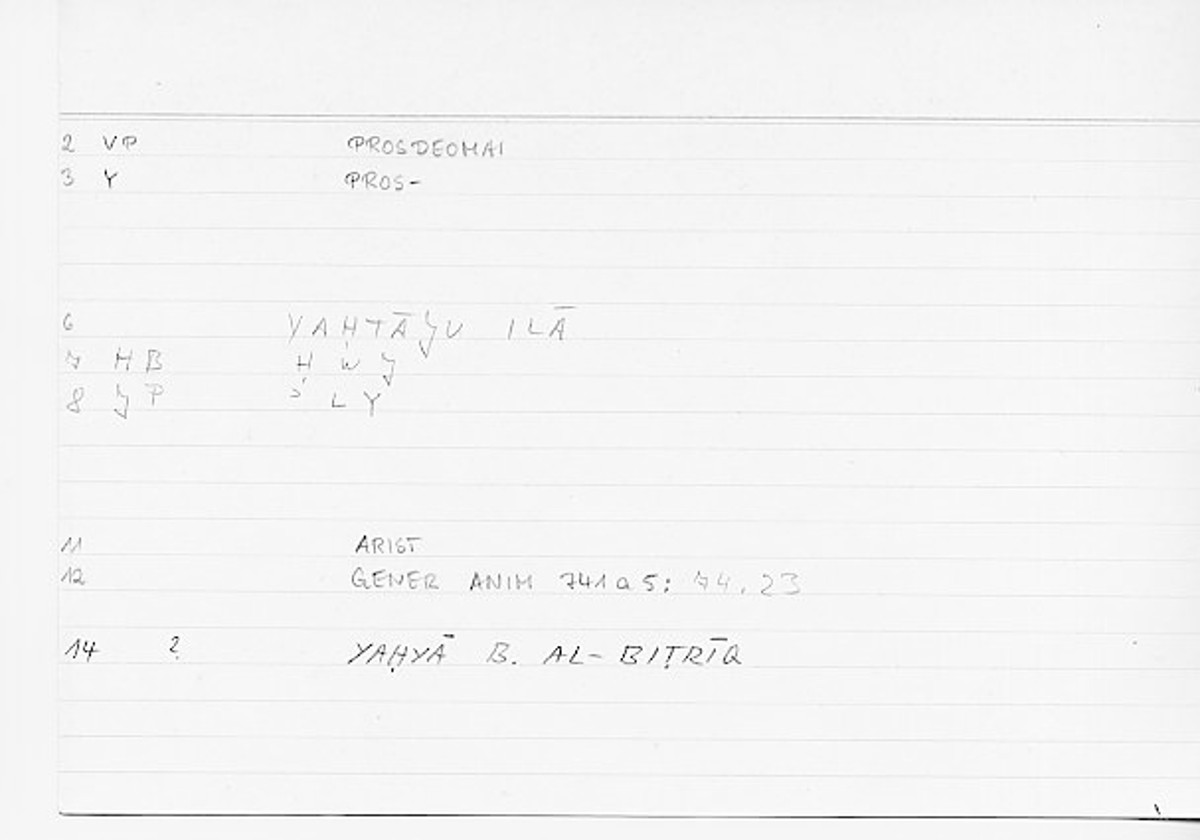 2 VP PROSDEOMAI
3 Y PROS-
6 YAḤTĀJU ILĀ
7 HB Ḥ W J
8 JP ʾ L Y
11 ARIST
12 GENER ANIM 741a5; 74.23
14 ? YAḤYĀ B. AL-BIṬRĪQ